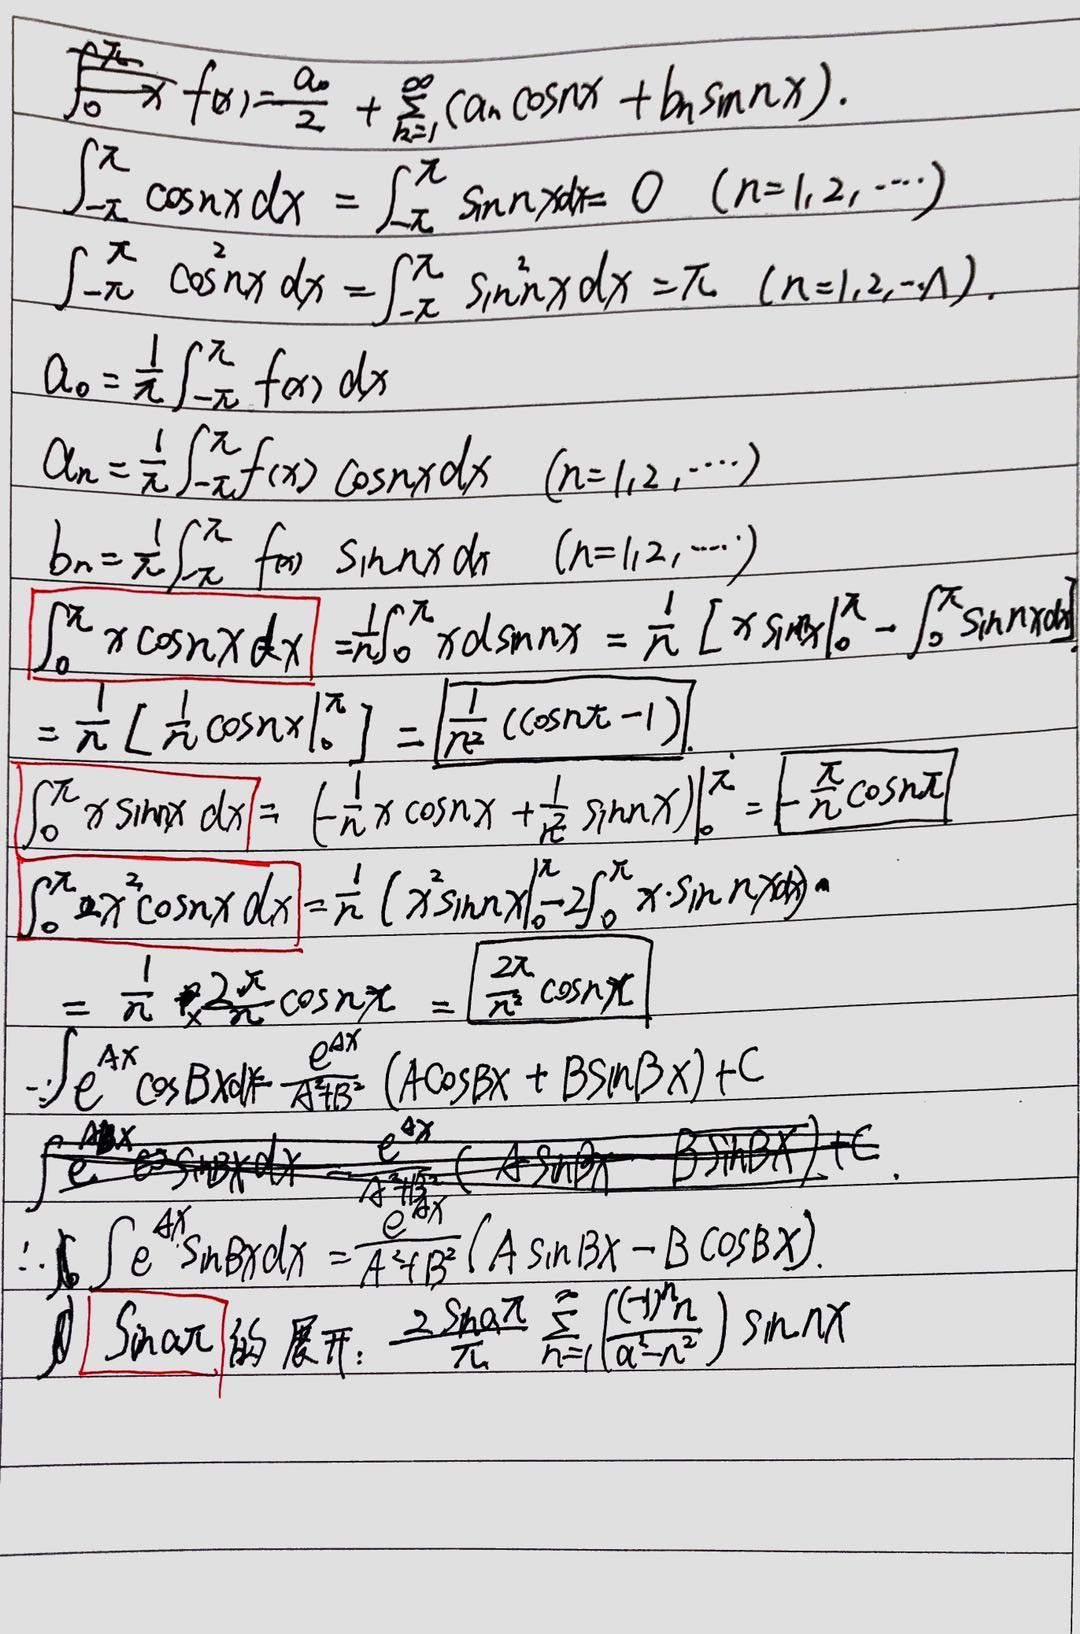 f(x)=a₀/2 + ∑_{n=1}^{∞} (aₙ cosnx + bₙ sinnx).
∫_{-π}^{π} cosnx dx = ∫_{-π}^{π} sinnxdx= 0 (n=1,2,····)
∫_{-π}^{π} cos²nx dx = ∫_{-π}^{π} sin²nx dx = π (n=1,2,···).
a₀ = 1/π ∫_{-π}^{π} f(x) dx
aₙ = 1/π ∫_{-π}^{π} f(x) cosnx dx (n=1,2,····)
bₙ = 1/π ∫_{-π}^{π} f(x) sinnx dx (n=1,2,····)
∫_0^π x cosnx dx = 1/n ∫_0^π x d sinnx = 1/n [x sinnx|_0^π - ∫_0^π sinnxdx]
= 1/n [1/n cosnx|_0^π] = 1/n² (cosnπ -1).
∫_0^π x sinnx dx = (-1/n x cosnx + 1/n² sinnx)|_0^π = -π/n cosnπ
∫_0^π x² cosnx dx = 1/n (x² sinnx|_0^π - 2∫_0^π x·sin nxdx)
= 1/n × 2π/n cosnπ = 2π/n² cosnπ
∵ ∫e^{AX} cosBxdx= e^{AX}/(A²+B²) (AcosBx + BsinBx)+C
∴ ∫e^{AX}·sinBxdx = e^{AX}/(A²+B²) (A sinBx - B cosBx).
sinaπ 的 展开: 2sinaπ/π ∑_{n=1}^{∞} ((-1)ⁿn/(a²-n²)) sinnx